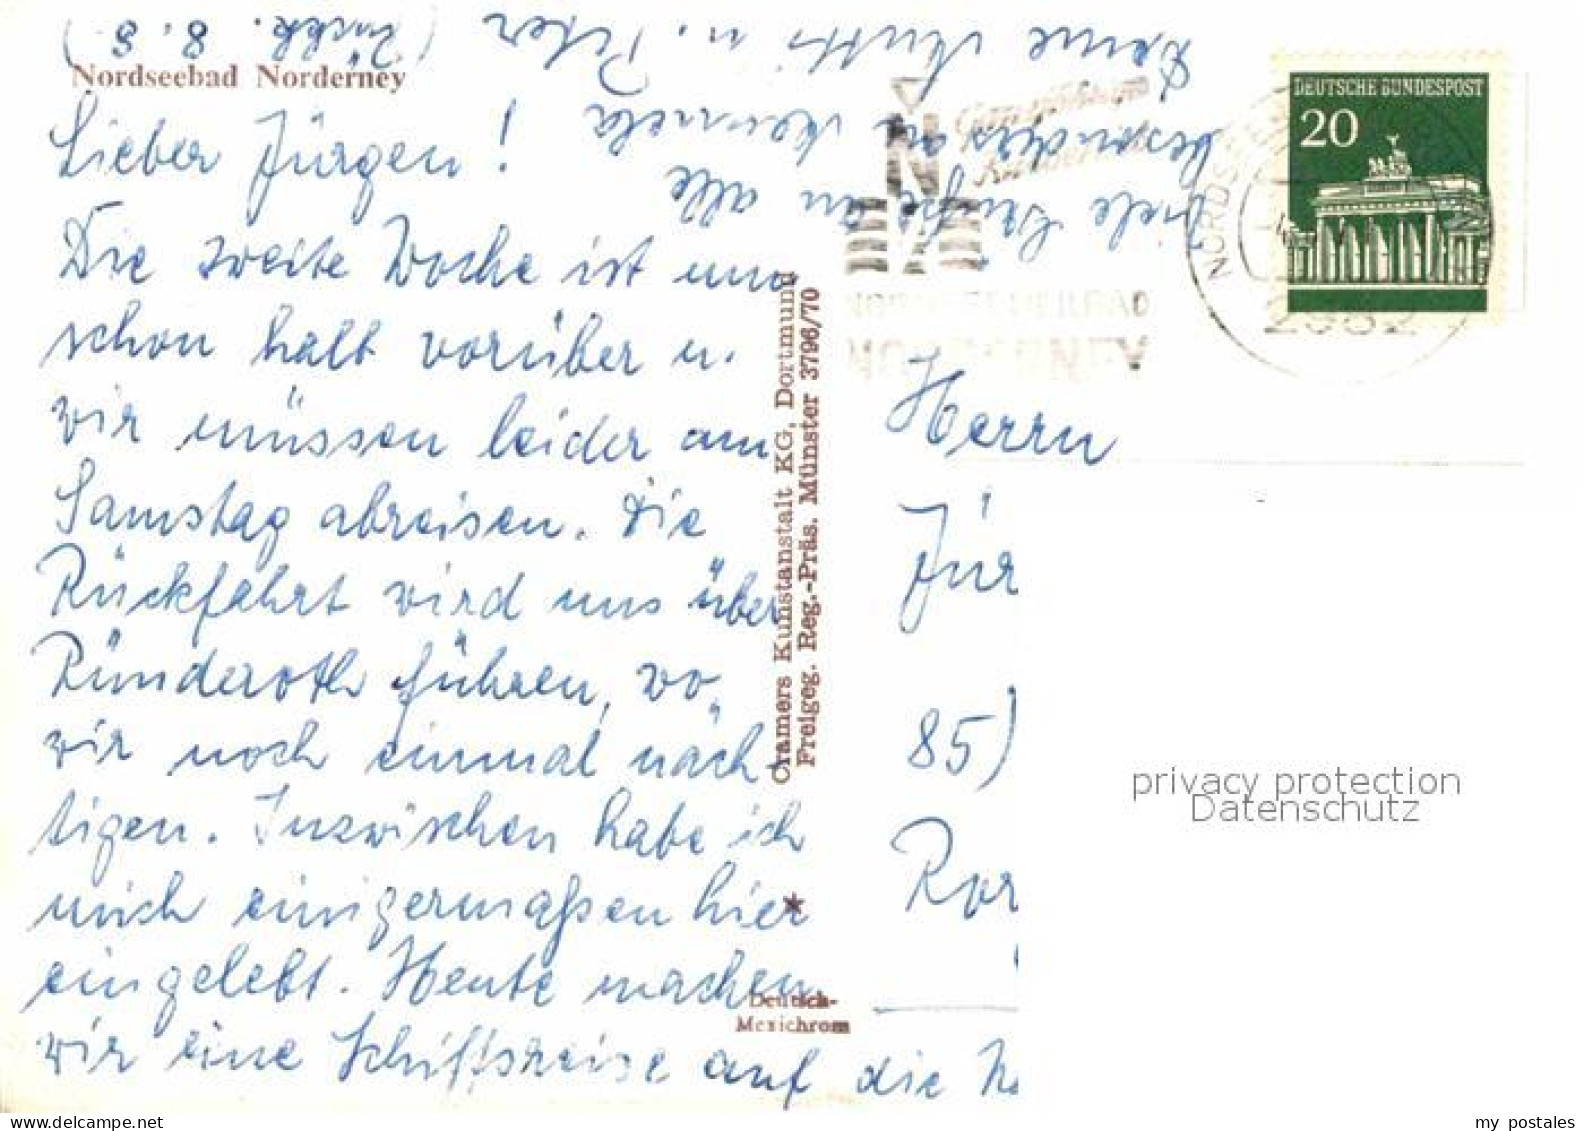 Nordseebad Norderney
Lieber Jürgen!
Die zweite Woche ist nun
schon halb vorüber u.
wir müssen leider am
Samstag abreisen. Die
Rückfahrt wird uns über
Ründeroth führen, wo
wir noch einmal näch-
tigen. Inzwischen habe ich
mich einigermaßen hier
eingelebt. Heute machen
wir eine Schiffsreise auf die
Viele Grüße an alle
besonders an
Deine Mutti u. Peter (Rückk. 8.8.)
Cramers Kunstanstalt KG, Dortmund
Freigeg. Reg.-Präs. Münster 3796/70
Deutsch-
Mexichrom
DEUTSCHE BUNDESPOST
20
N
NORDSEEHEILBAD
NORDERNEY
NORDSEE
2982
Herrn
Jür
85)
Ror
privacy protection
Datenschutz
my postales